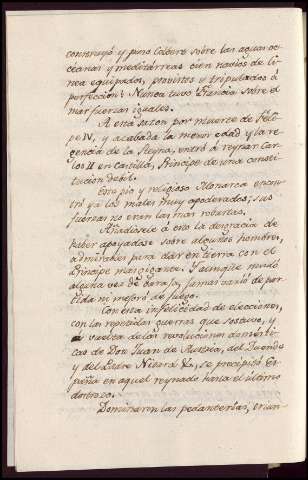 construyó y puso Colbert sobre las aguas oc-
céanas y mediterraneas cien navíos de li-
nea equipados, provistos y tripulados á
perfeccion: Nunca tuvo Francia sobre el
mar fuerzas iguales.
A esta sazon por muerte de Feli-
pe IV, y acabada la menor edad y la re-
gencia de la Reyna, entró á reynar Car-
los II en Castilla, Príncipe de una consti-
tucion debil.
Este pio y religioso Monarca encon-
tró ya los males muy apoderados; sus
fuerzas no eran las mas robustas.
Añadiosele á esto la desgracia de
haber apoyadose sobre algunos hombres,
admirables para dar en tierra con el
Príncipe mas gigante. Y aunque mudó
alguna vez de baraja, jamas varió de par-
tida ni mejoró de juego.
Con esta infelicidad de elecciones,
con las repetidas guerras que sostuvo, y
á vuelta de las revoluciones domesti-
cas de Don Juan de Austria, del Duende
y del Padre Nitard &c, se precipitó Es-
paña en aquel reynado hasta el último
destrozo.
Dominaron las pedanterías, crian-